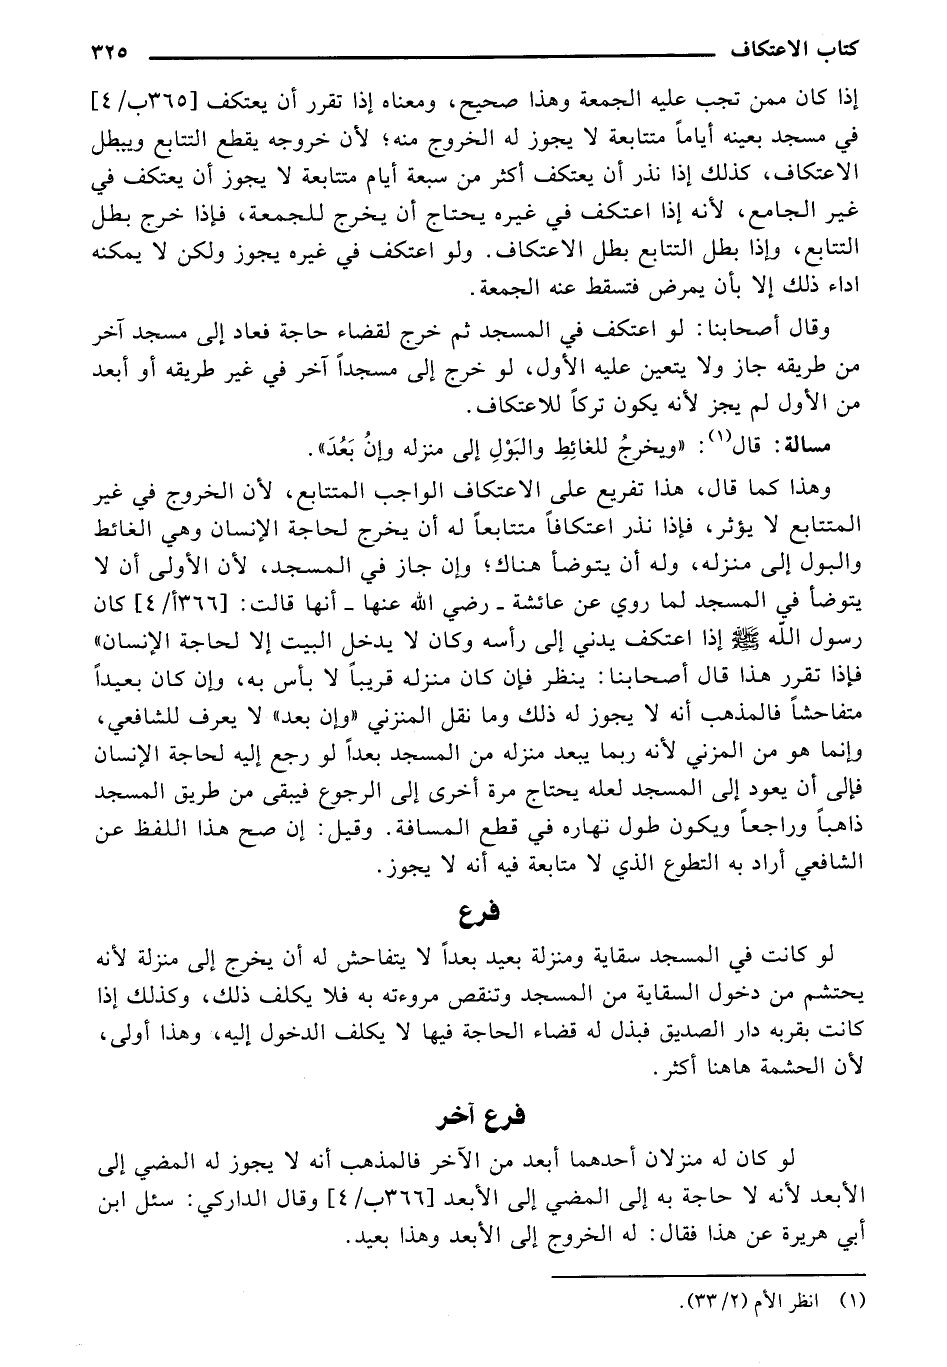 كتاب الاعتكاف ٣٢٥
إذا كان ممن تجب عليه الجمعة وهذا صحيح، ومعناه إذا تقرر أن يعتكف [٣٦٥ب/ ٤]
في مسجد بعينه أياماً متتابعة لا يجوز له الخروج منه؛ لأن خروجه يقطع التتابع ويبطل
الاعتكاف، كذلك إذا نذر أن يعتكف أكثر من سبعة أيام متتابعة لا يجوز أن يعتكف في
غير الجامع، لأنه إذا اعتكف في غيره يحتاج أن يخرج للجمعة، فإذا خرج بطل
التتابع، وإذا بطل التتابع بطل الاعتكاف. ولو اعتكف في غيره يجوز ولكن لا يمكنه
اداء ذلك إلا بأن يمرض فتسقط عنه الجمعة.
وقال أصحابنا: لو اعتكف في المسجد ثم خرج لقضاء حاجة فعاد إلى مسجد آخر
من طريقه جاز ولا يتعين عليه الأول، لو خرج إلى مسجداً آخر في غير طريقه أو أبعد
من الأول لم يجز لأنه يكون تركاً للاعتكاف.
مسالة: قال(١): «ويخرجُ للغائِطِ والبَوْلِ إلى منزله وإنْ بَعُدَ».
وهذا كما قال، هذا تفريع على الاعتكاف الواجب المتتابع، لأن الخروج في غير
المتتابع لا يؤثر، فإذا نذر اعتكافاً متتابعاً له أن يخرج لحاجة الإنسان وهي الغائط
والبول إلى منزله، وله أن يتوضأ هناك؛ وإن جاز في المسجد، لأن الأولى أن لا
يتوضأ في المسجد لما روي عن عائشة ـ رضي الله عنها ـ أنها قالت: [٣٦٦أ/ ٤] كان
رسول الله ﷺ إذا اعتكف يدني إلى رأسه وكان لا يدخل البيت إلا لحاجة الإنسان»
فإذا تقرر هذا قال أصحابنا: ينظر فإن كان منزله قريباً لا بأس به، وإن كان بعيداً
متفاحشاً فالمذهب أنه لا يجوز له ذلك وما نقل المنزني «وإن بعد» لا يعرف للشافعي،
وإنما هو من المزني لأنه ربما يبعد منزله من المسجد بعداً لو رجع إليه لحاجة الإنسان
فإلى أن يعود إلى المسجد لعله يحتاج مرة أخرى إلى الرجوع فيبقى من طريق المسجد
ذاهباً وراجعاً ويكون طول نهاره في قطع المسافة. وقيل: إن صح هذا اللفظ عن
الشافعي أراد به التطوع الذي لا متابعة فيه أنه لا يجوز.
فرع
لو كانت في المسجد سقاية ومنزلة بعيد بعداً لا يتفاحش له أن يخرج إلى منزلة لأنه
يحتشم من دخول السقاية من المسجد وتنقص مروءته به فلا يكلف ذلك، وكذلك إذا
كانت بقربه دار الصديق فبذل له قضاء الحاجة فيها لا يكلف الدخول إليه، وهذا أولى،
لأن الحشمة هاهنا أكثر.
فرع آخر
لو كان له منزلان أحدهما أبعد من الآخر فالمذهب أنه لا يجوز له المضي إلى
الأبعد لأنه لا حاجة به إلى المضي إلى الأبعد [٣٦٦ب/ ٤] وقال الداركي: سئل ابن
أبي هريرة عن هذا فقال: له الخروج إلى الأبعد وهذا بعيد.
(١) انظر الأم (٢/ ٣٣).